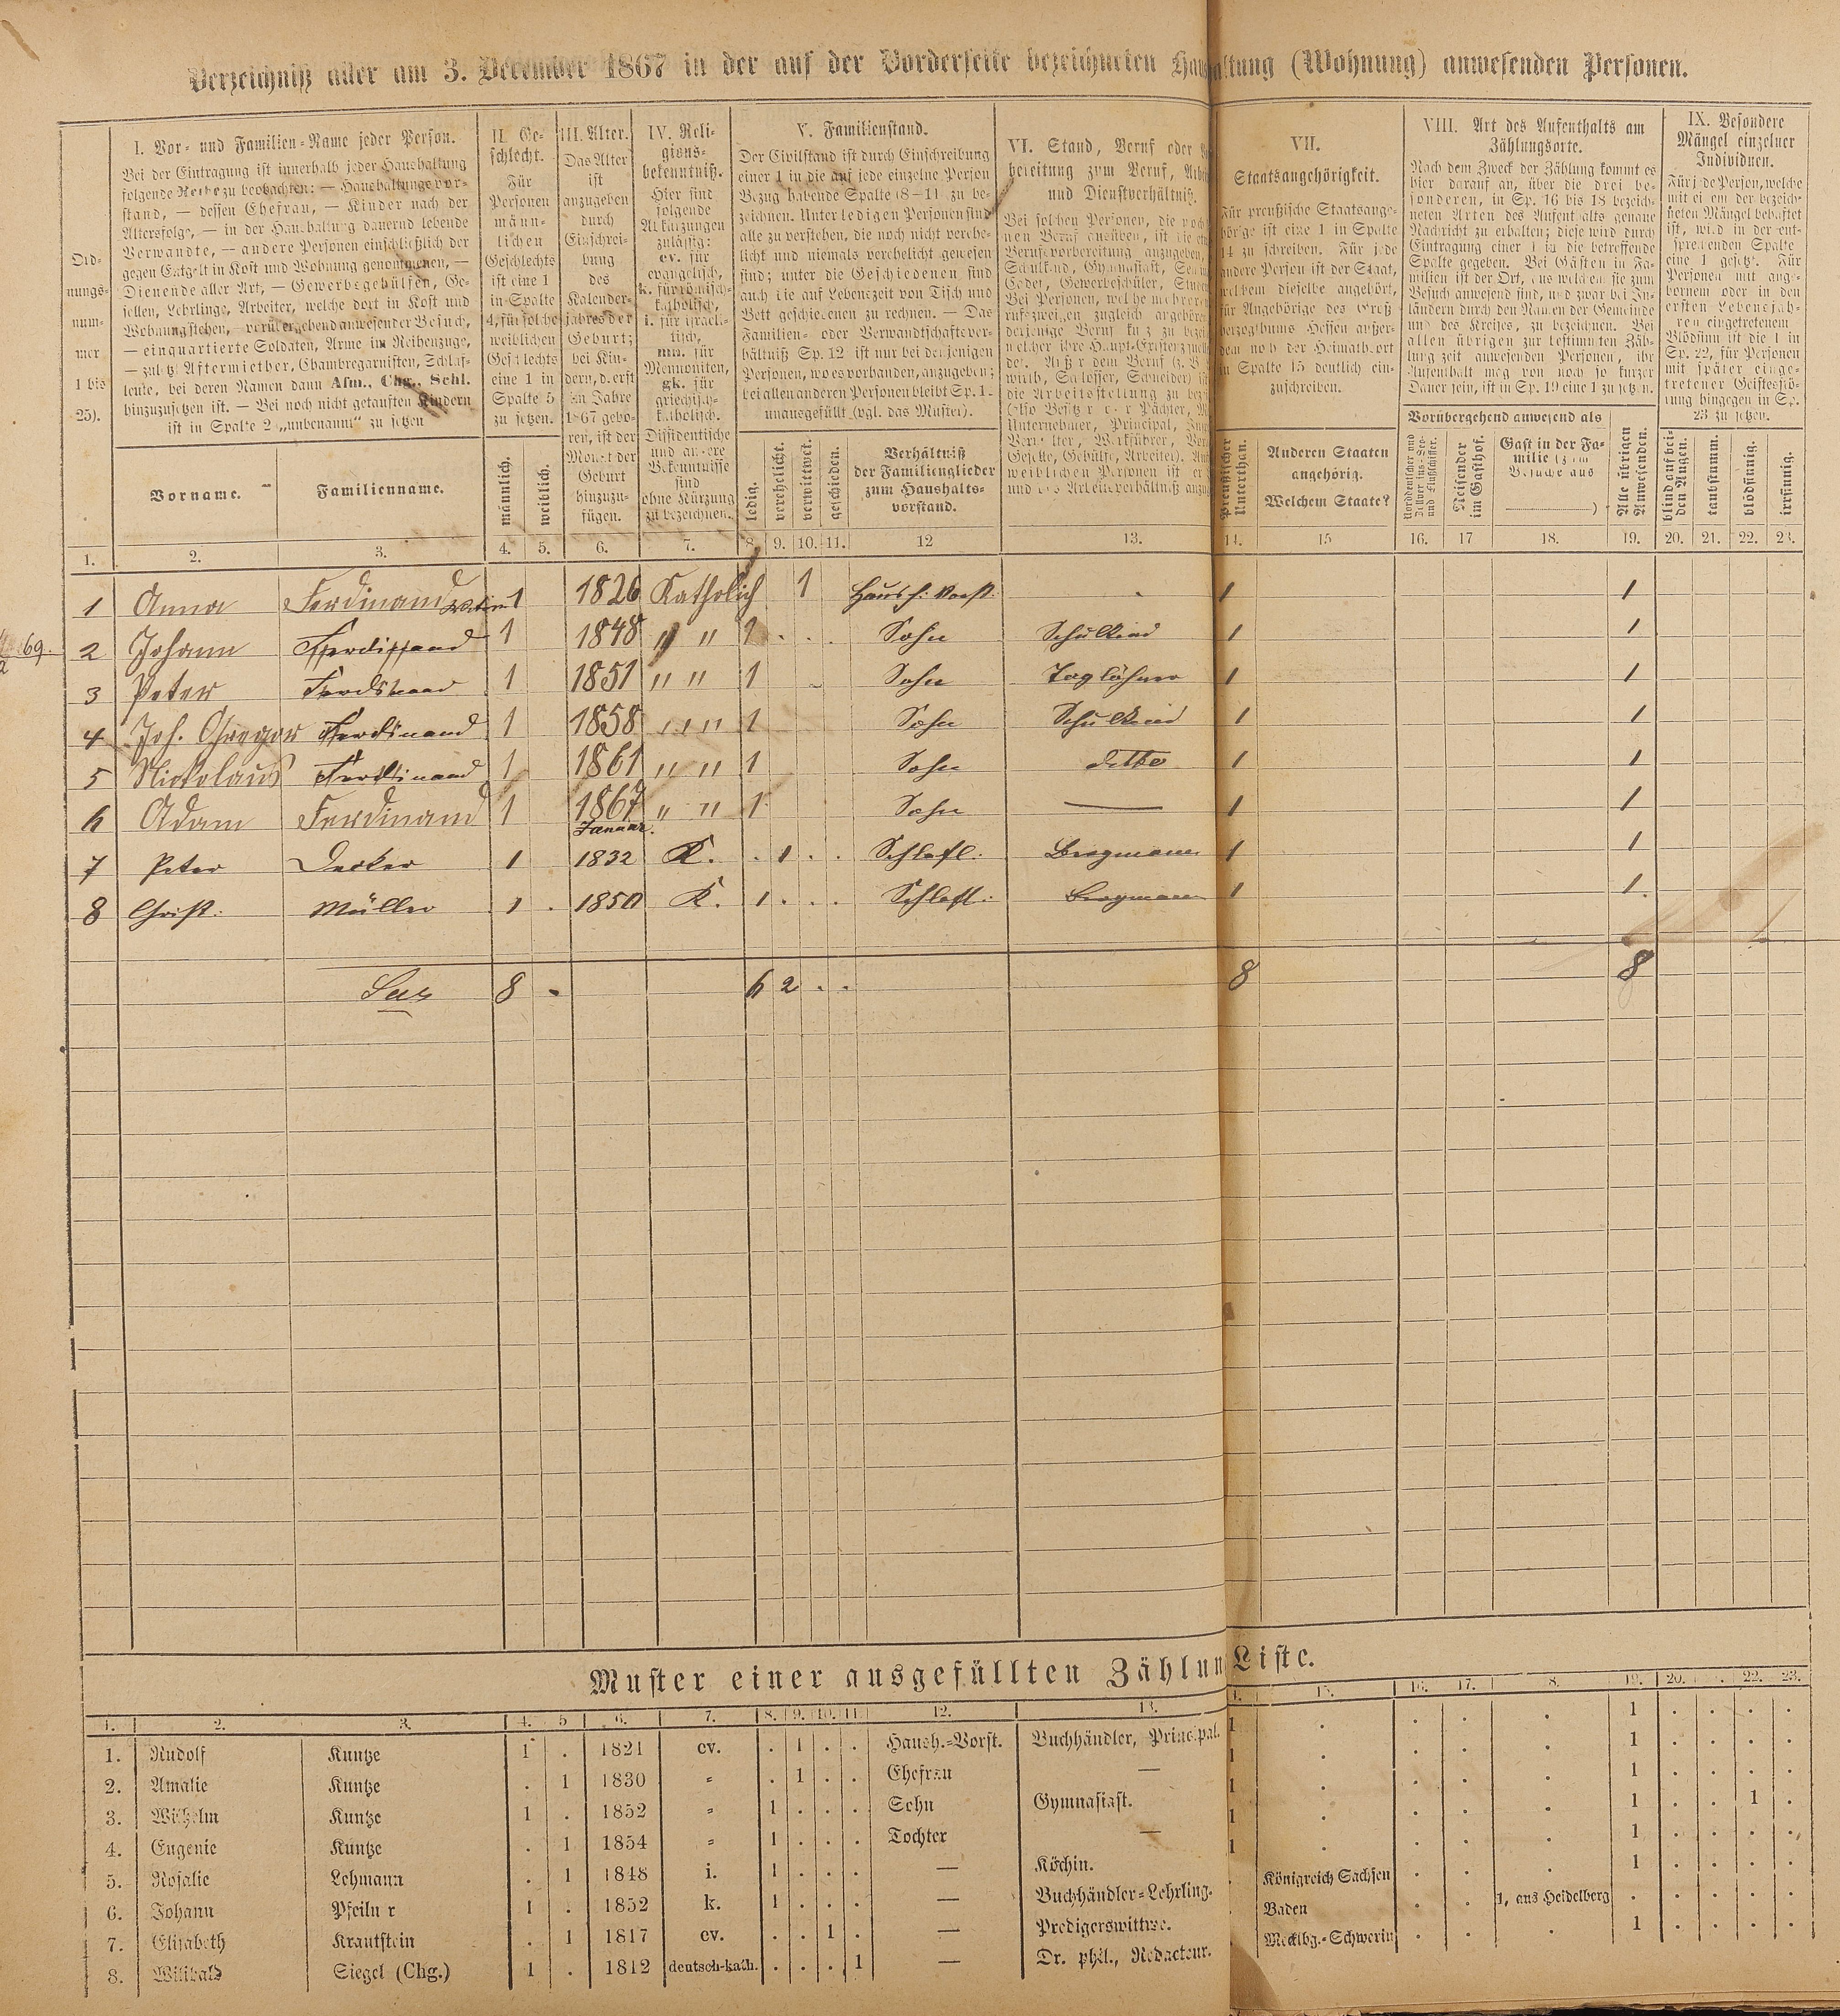 Verzeichniß aller am 3. December 1867 in der auf der Vorderseite bezeichneten Haushaltung (Wohnung) anwesenden Personen.
Ord-
nungs-
num-
mer
1 bis
25).
I. Vor- und Familien-Name jeder Person.
Bei der Eintragung ist innerhalb jeder Haushaltung
folgende Reihe zu beobachten: — Haushaltungsvor-
stand, — dessen Ehefrau, — Kinder nach der
Altersfolge, — in der Haushaltung dauernd lebende
Verwandte, — andere Personen einschließlich der
gegen Entgelt in Kost und Wohnung genommenen, —
Dienende aller Art, — Gewerbsgehülfen, Ge-
sellen, Lehrlinge, Arbeiter, welche dort in Kost und
Wohnung stehen, — vorübergehend anwesender Besuch,
— einquartierte Soldaten, Arme im Reihenzuge,
— zuletzt Aftermiether, Chambregarnisten, Schlaf-
leute, bei deren Namen dann Afm., Chg., Schl.
hinzuzusetzen ist. — Bei noch nicht getauften Kindern
ist in Spalte 2 „unbenannt“ zu setzen
Vorname.
Familienname.
II. Ge-
schlecht.
Für
Personen
männ-
lichen
Geschlechts
ist eine 1
in Spalte
4, für solche
weiblichen
Geschlechts
eine 1 in
Spalte 5
zu setzen.
männlich.
weiblich.
III. Alter.
Das Alter
ist
anzugeben
durch
Einschrei-
bung
des
Kalender-
jahres der
Geburt;
bei Kin-
dern, d. erst
im Jahre
1867 gebo-
ren, ist der
Monat der
Geburt
hinzuzu-
fügen.
IV. Reli-
gions-
bekenntniß.
Hier sind
folgende
Abkürzungen
zulässig:
ev. für
evangelisch,
k. für römisch-
katholisch,
i. für israeli-
tisch,
mn. für
Mennoniten,
gk. für
griechisch-
katholisch.
Dissidentische
und andere
Bekenntnisse
sind
ohne Kürzung
zu bezeichnen.
V. Familienstand.
Der Civilstand ist durch Einschreibung
einer 1 in die auf jede einzelne Person
Bezug habende Spalte (8—11) zu be-
zeichnen. Unter ledigen Personen sind
alle zu verstehen, die noch nicht verehe-
licht und niemals verehelicht gewesen
sind; unter die Geschiedenen sind
auch die auf Lebenszeit von Tisch und
Bett geschiedenen zu rechnen. — Das
Familien- oder Verwandtschaftsver-
hältniß Sp. 12 ist nur bei denjenigen
Personen, wo es vorhanden, anzugeben;
bei allen anderen Personen bleibt Sp. 1.
unausgefüllt (vgl. das Muster).
ledig.
verehelicht.
verwittwet.
geschieden.
Verhältniß
der Familienglieder
zum Haushalts-
vorstand.
VI. Stand, Beruf oder
bereitung zum Beruf,
und Dienstverhältniß.
VII.
Staatsangehörigkeit.
Für preußische Staatsange-
hörige ist eine 1 in Spalte
14 zu schreiben. Für jede
andere Person ist der Staat,
welchem dieselbe angehört,
für Angehörige des Groß-
herzogthums Hessen außer-
dem noch der Heimathsort
in Spalte 15 deutlich ein-
zuschreiben.
Preußischer
Unterthan.
Anderen Staaten
angehörig.
Welchem Staate?
VIII. Art des Aufenthalts am
Zählungsorte.
Nach dem Zweck der Zählung kommt es
hier darauf an, über die drei be-
sonderen, in Sp. 16 bis 18 bezeich-
neten Arten des Aufenthalts genaue
Nachricht zu erhalten; diese wird durch
Eintragung einer 1 in die betreffende
Spalte gegeben. Bei Gästen in Fa-
milien ist der Ort, aus welchem sie zum
Besuch anwesend sind, und zwar bei In-
ländern durch den Namen der Gemeinde
und des Kreises, zu bezeichnen. Bei
allen übrigen zur bestimmten Zäh-
lungszeit anwesenden Personen, ihr
Aufenthalt mag von noch so kurzer
Dauer sein, ist in Sp. 19 eine 1 zu setzen.
Vorübergehend anwesend als
Reisender
im Gasthof.
Gast in der Fa-
milie (zum
Besuche aus
)
Alle übrigen
Anwesenden.
IX. Besondere
Mängel einzelner
Individuen.
Für jede Person, welche
mit einem der bezeich-
neten Mängel behaftet
ist, wird in der ent-
sprechenden Spalte
eine 1 gesetzt. Für
Personen mit ange-
bornem oder in den
ersten Lebensjah-
ren eingetretenem
Blödsinn ist die 1 in
Sp. 22, für Personen
mit später einge-
tretener Geistesstö-
rung hingegen in Sp.
23 zu setzen.
blind auf bei-
den Augen.
taubstumm.
blödsinnig.
irrsinnig.
1. 2. 3. 4. 5. 6. 7. 8. 9. 10. 11. 12 13. 14. 15 16. 17 18. 19. 20. 21. 22. 23.
1 Anna Ferdinand 1 1826 Katholich 1 Haush. Vorst. 1 1
2 Johann Ferdinand 1 1848 " " 1 . . . Sohn Schulkind 1 1
3 Peter Ferdinand 1 1851 " " 1 Sohn Taglöhner 1 1
4 Joh. Gregor Ferdinand 1 1858 " " 1 Sohn Schulkind 1 1
5 Nickolaus Ferdinand 1 1861 " " 1 Sohn detto 1 1
6 Adam Ferdinand 1 1867 " " 1 Sohn — 1 1
Januar.
7 Peter Decker 1 1832 K. . 1 . . Schlafl. Bergmann 1 1
8 Christ. Müller 1 . 1850 K. 1 . . . Schlafl. Bergmann 1 1.
8 . 6 2 . . 8 8
69.
2
Muster einer ausgefüllten Zählun Liste.
1. 2. 3. 4. 5 6. 7. 8. 9. 10. 11. 12. 13. 15. 16. 17. 8. 19. 20. 22. 23.
1. Rudolf Kuntze 1 . 1821 ev. . 1 . . Haush.-Vorst. Buchhändler, Principal. 1 . . . . 1 . . . .
2. Amalie Kuntze . 1 1830 " . 1 . . Ehefrau — 1 . . . . 1 . . . .
3. Wilhelm Kuntze 1 . 1852 " 1 . . . Sohn Gymnasiast. 1 . . . . 1 . . . .
4. Eugenie Kuntze . 1 1854 " 1 . . . Tochter — 1 . . . . 1 . . 1 .
5. Rosalie Lehmann . 1 1848 i. 1 . . . — Köchin. 1 . . . . 1 . . . .
6. Johann Pfeiln r 1 . 1852 k. 1 . . . — Buchhändler-Lehrling. . Königreich Sachsen . . . 1 . . . .
7. Elisabeth Krautstein . 1 1817 ev. . . 1 . — Predigerswittwe. . Baden . . 1, aus Heidelberg . . . . .
8. Wilibald Siegel (Chg.) 1 . 1812 deutsch-kath. . . . 1 — Dr. phil., Redacteur. . Mecklbg.-Schwerin . . . 1 . . . .